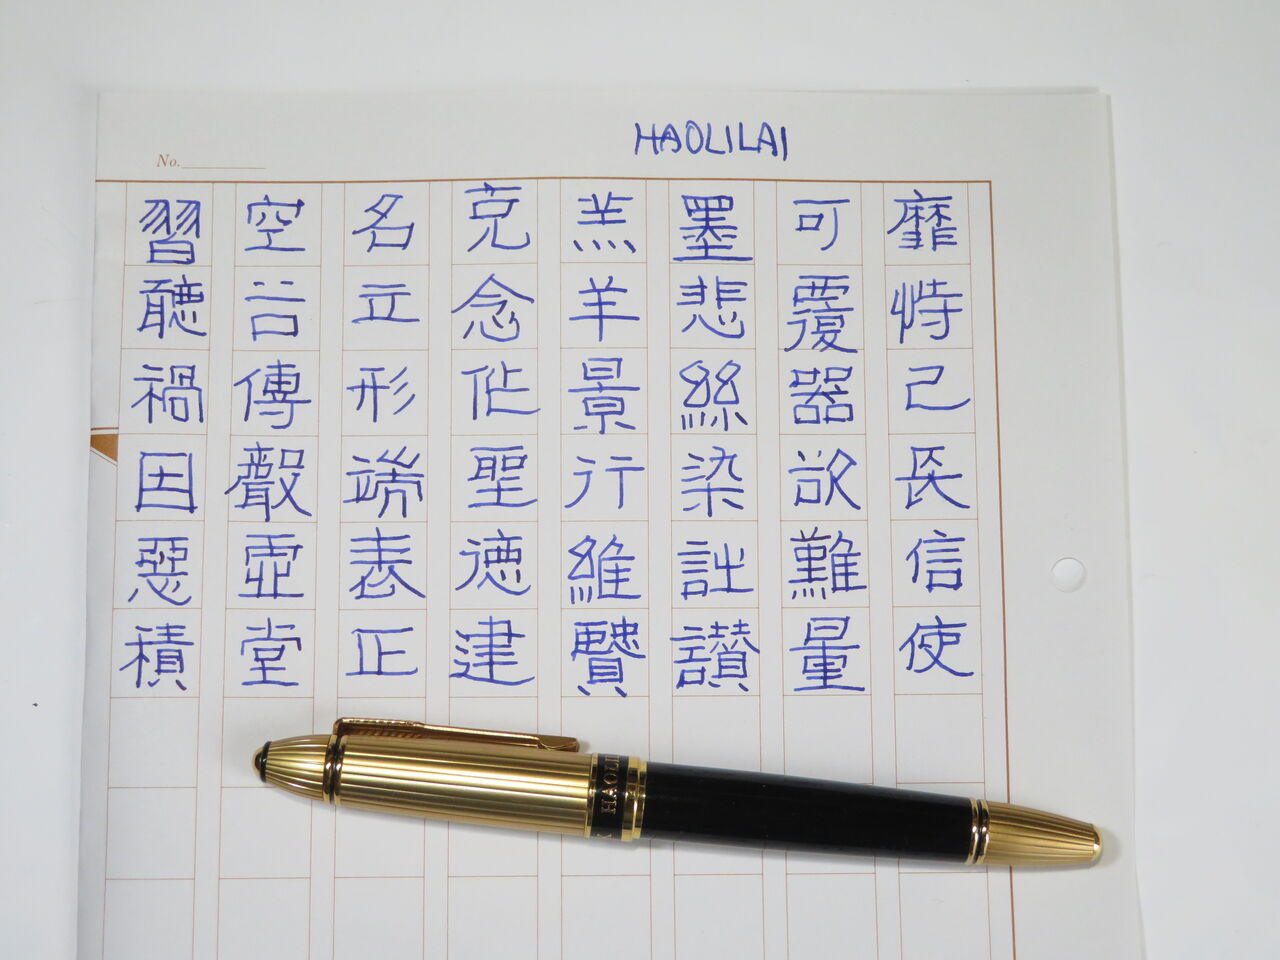 HAOLILAI
No.
靡恃己長信使
可覆器欲難量
墨悲絲染詩讚
羔羊景行維賢
克念作聖德建
名立形端表正
空谷傳聲虛堂
習聽禍因惡積